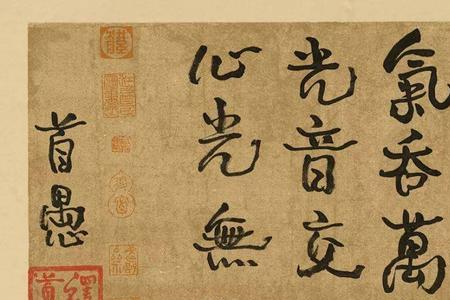 氣吞萬
光音交
心光無
首愚